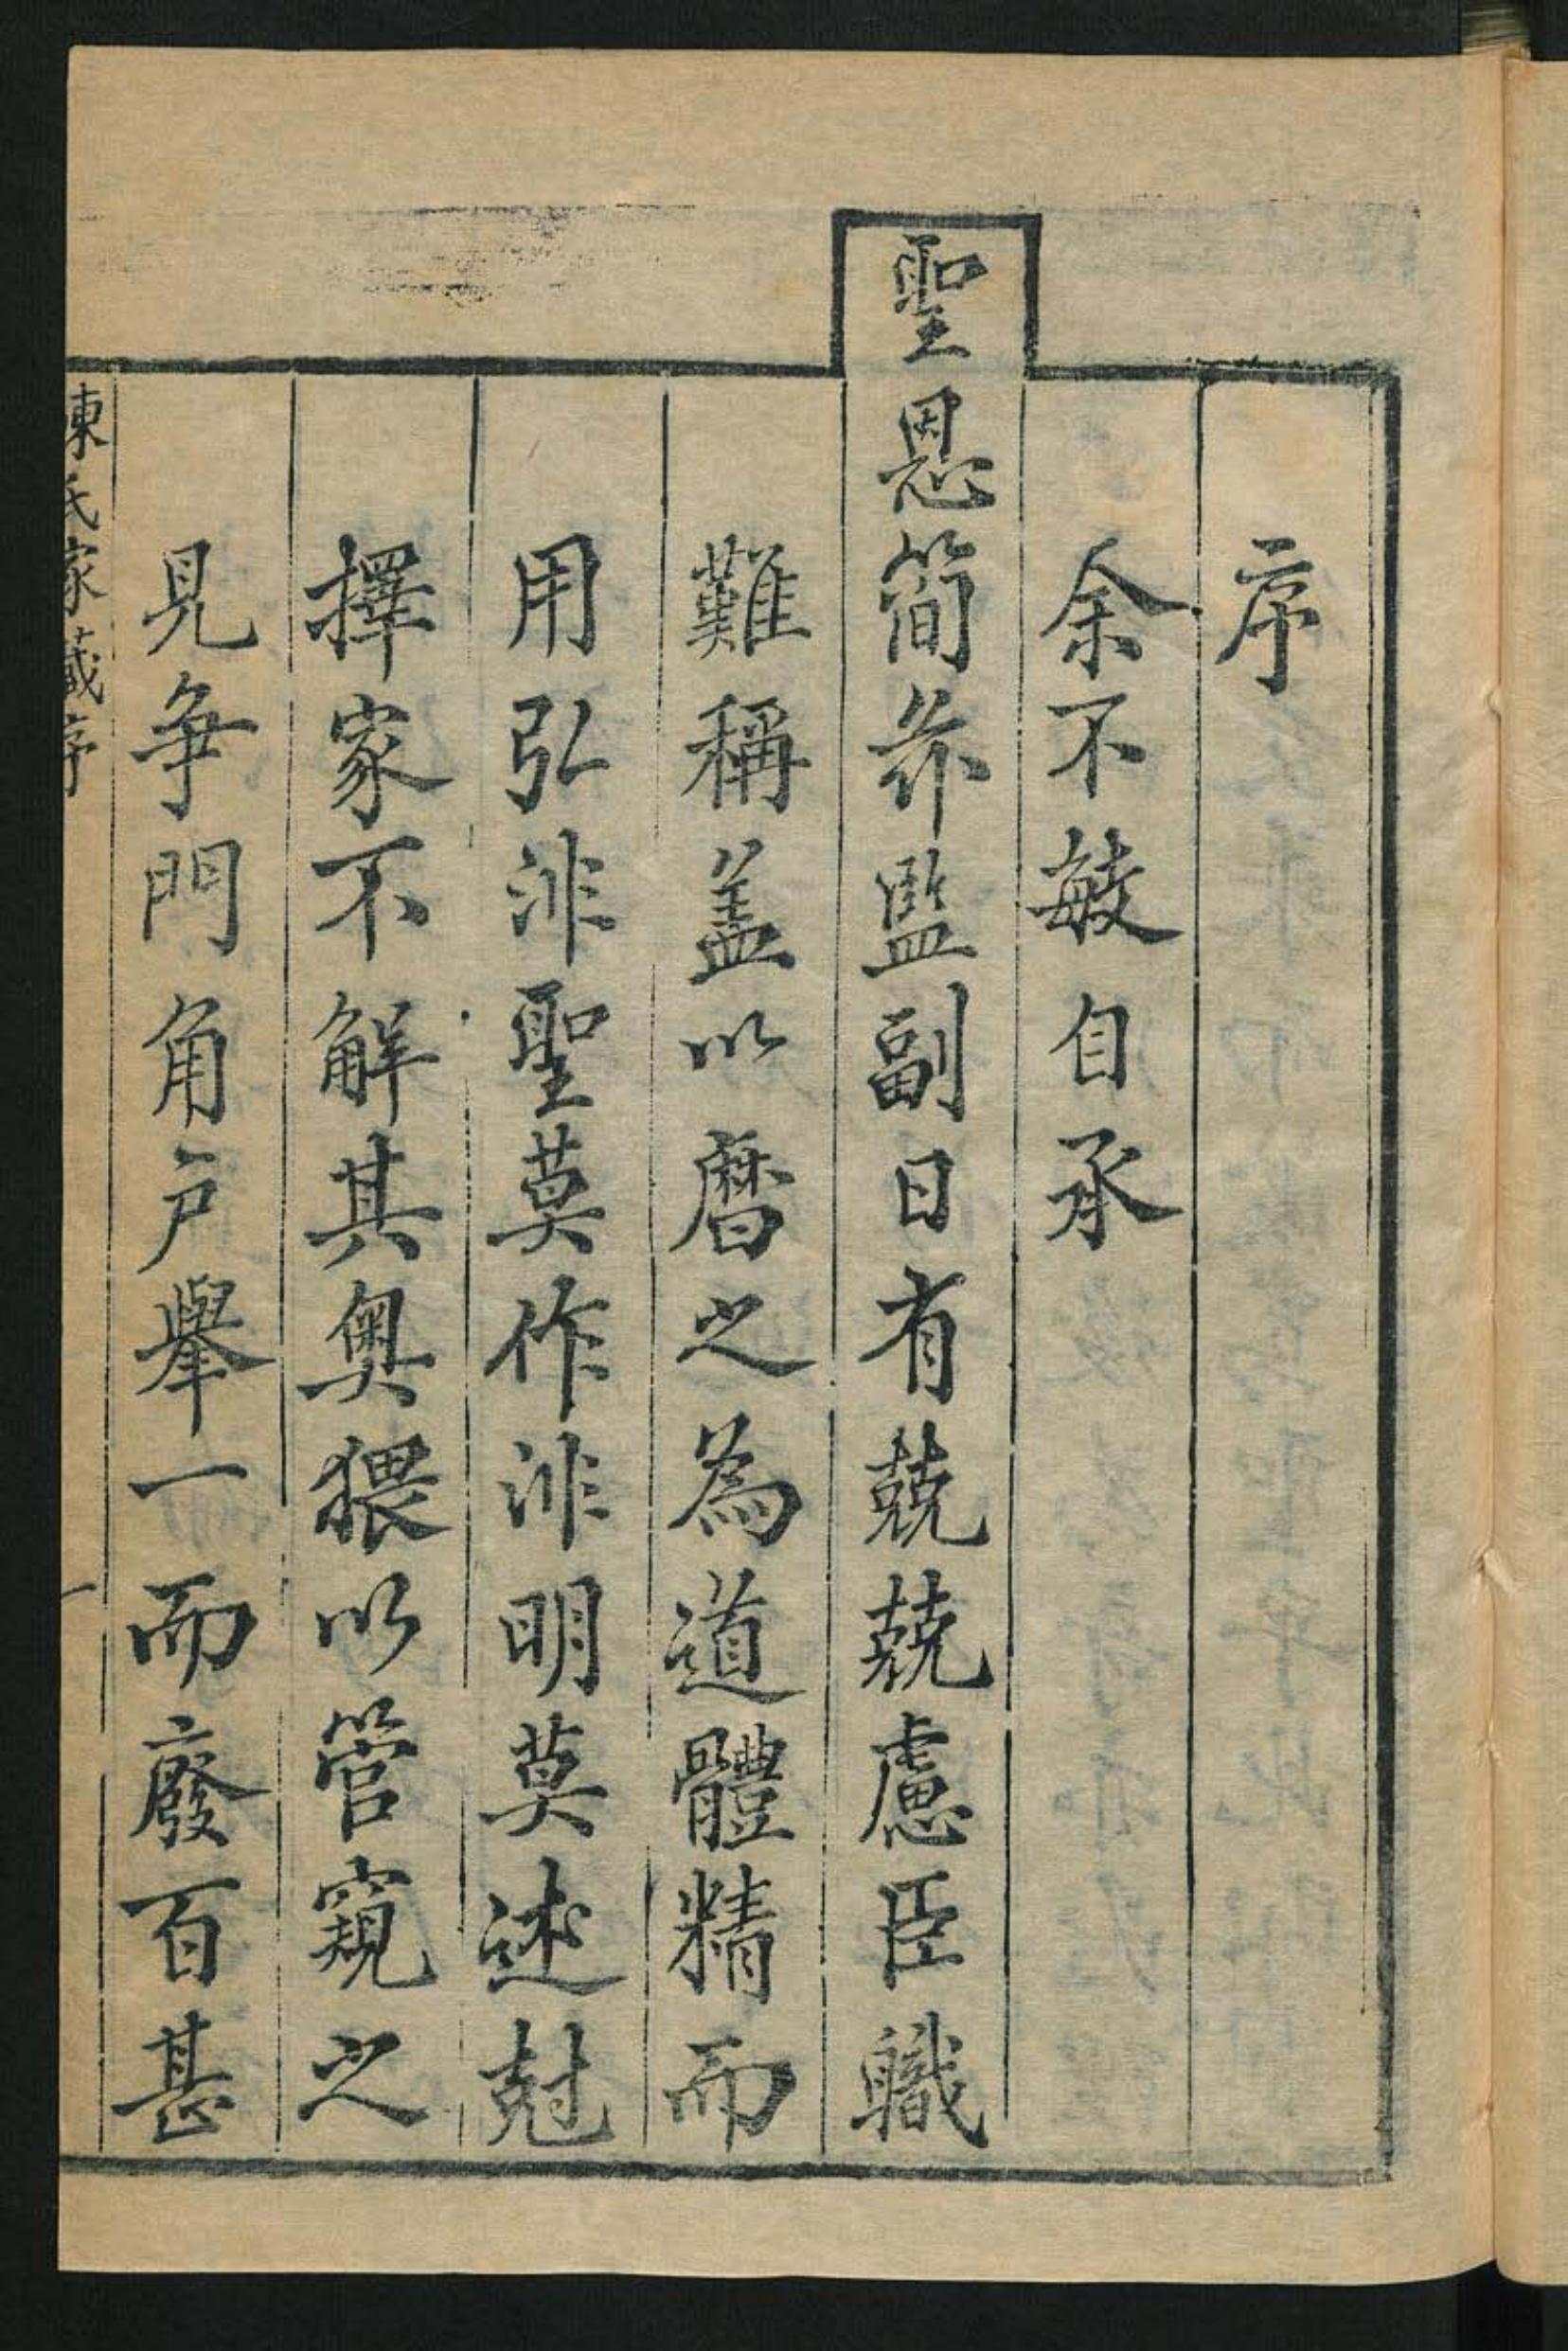 序
余不敏自承
聖恩簡芥監副日有兢兢慮臣職
難稱盖以曆之為道體精而
用弘非聖莫作非明莫述尅
擇家不解其奧猥以管窺之
見争門角户舉一而廢百甚
陳氏家藏序
一